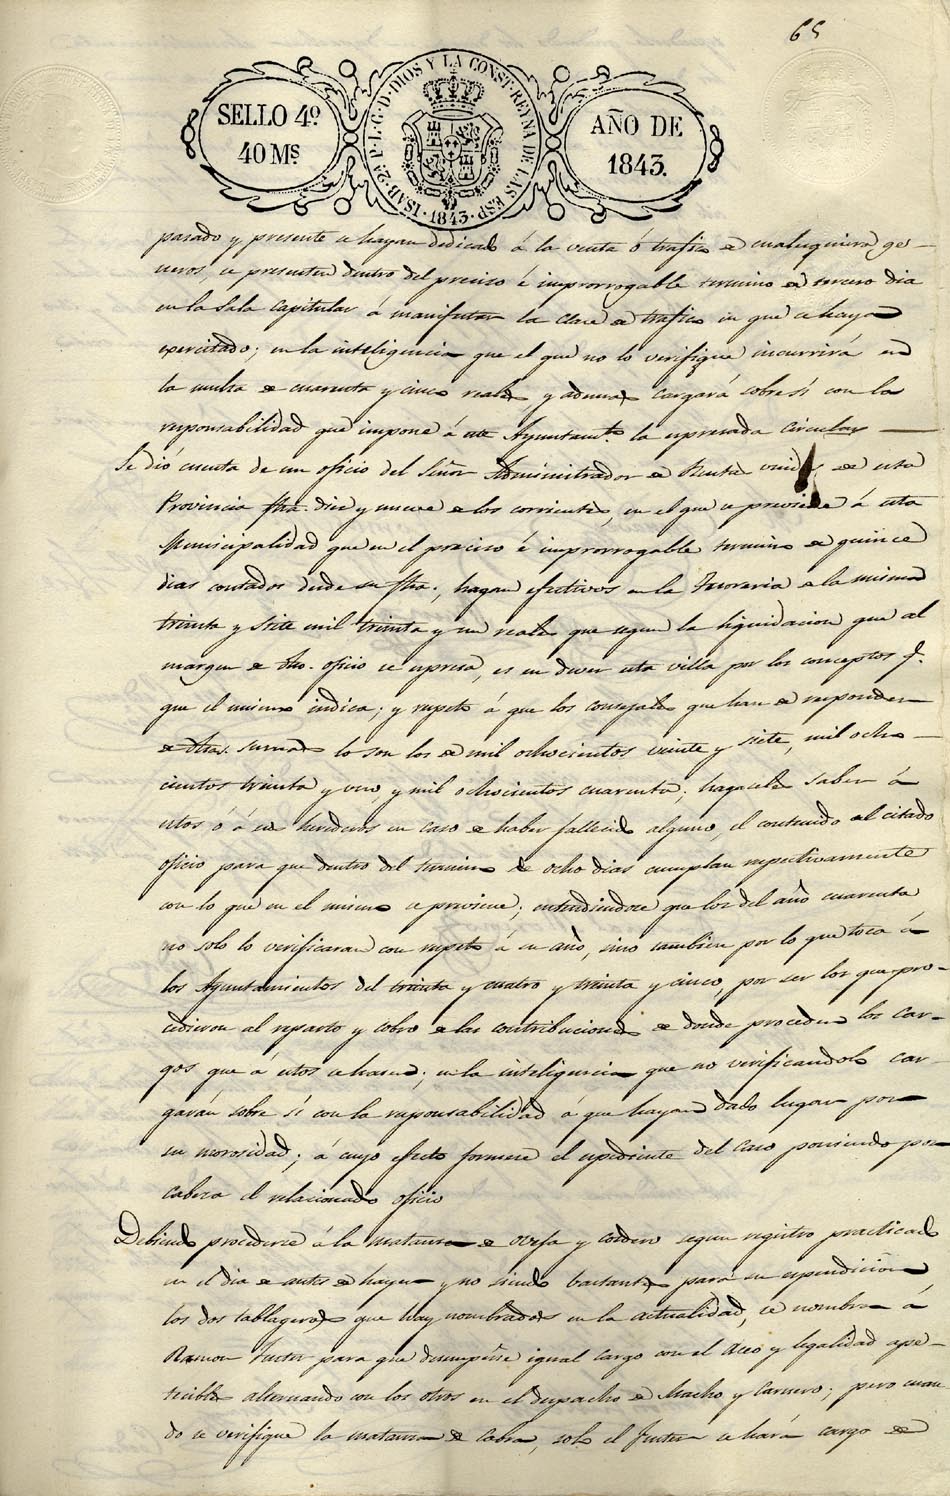 65
SELLO 4º
40 Mˢ
ISAB. 2ª P. L. G. D. DIOS Y LA CONST. REYNA DE LAS ESP.
1843
AÑO DE
1843.
pasado y presente se hayan dedicado á la venta ó trafico de cualesquiera ge-
neros, se presenten dentro del preciso é improrrogable termino de tercero dia
en la Sala Capitular á manifestar la clase de trafico en que se hayan
exercitado; en la inteligencia que el que no lo verifique incurrirá en
la multa de cuarenta y cinco reales y ademas cargará sobre sí con la
responsabilidad que impone á este Ayuntamtº. la expresada Circular
Se dió cuenta de un oficio del Señor Administrador de Rentas unidas de esta
Provincia fha. diez y nueve de los corrientes, en el que se previene á esta
Municipalidad que en el preciso é improrrogable termino de quince
dias contados desde su fha., hagan efectivos en la Tesoreria de la misma
treinta y siete mil treinta y un reales que segun la liquidacion que al
margen de dho. oficio se expresa, es en dever esta villa por los conceptos q.
que el mismo indica; y respeto á que los consejales que han de responder
de dhas. sumas lo son los de mil ochocientos veinte y siete, mil ocho-
cientos treinta y uno, y mil ochocientos cuarenta; hagasele saber á
estos ó á sus herederos en caso de haber fallecido alguno, el contenido del citado
oficio para que dentro del termino de ocho dias cumplan respectivamente
con lo que en el mismo se previene; entendiendose que los del año cuarenta
no solo lo verificaran con respeto á su año, sino tambien por lo que toca á
los Ayuntamientos del treinta y cuatro y treinta y cinco, por ser los que pro-
cedieron al reparto y cobro de las contribuciones de donde proceden los Car-
gos que á estos se hacen; en la inteligencia que no verificandolo car-
garán sobre sí con la responsabilidad á que hayan dado lugar por
su morosidad; á cuyo efecto formese el espediente del caso poniendo por
cabeza el relacionado oficio
Debiendo procederse á la matanza de oveja y cordero segun registro practicado
en el dia de antes de hayer y no siendo bastantes para su espendicion
los dos tablageros que hay nombrados en la actualidad, se nombra á
Ramon Fuster para que desempeñe igual cargo con el Aceo y legalidad ape-
tecible alternando con los otros en el despacho de Macho y Carnero; pero cuan
do se verifique la matanza de Cabra, solo el Fuster se hará cargo de